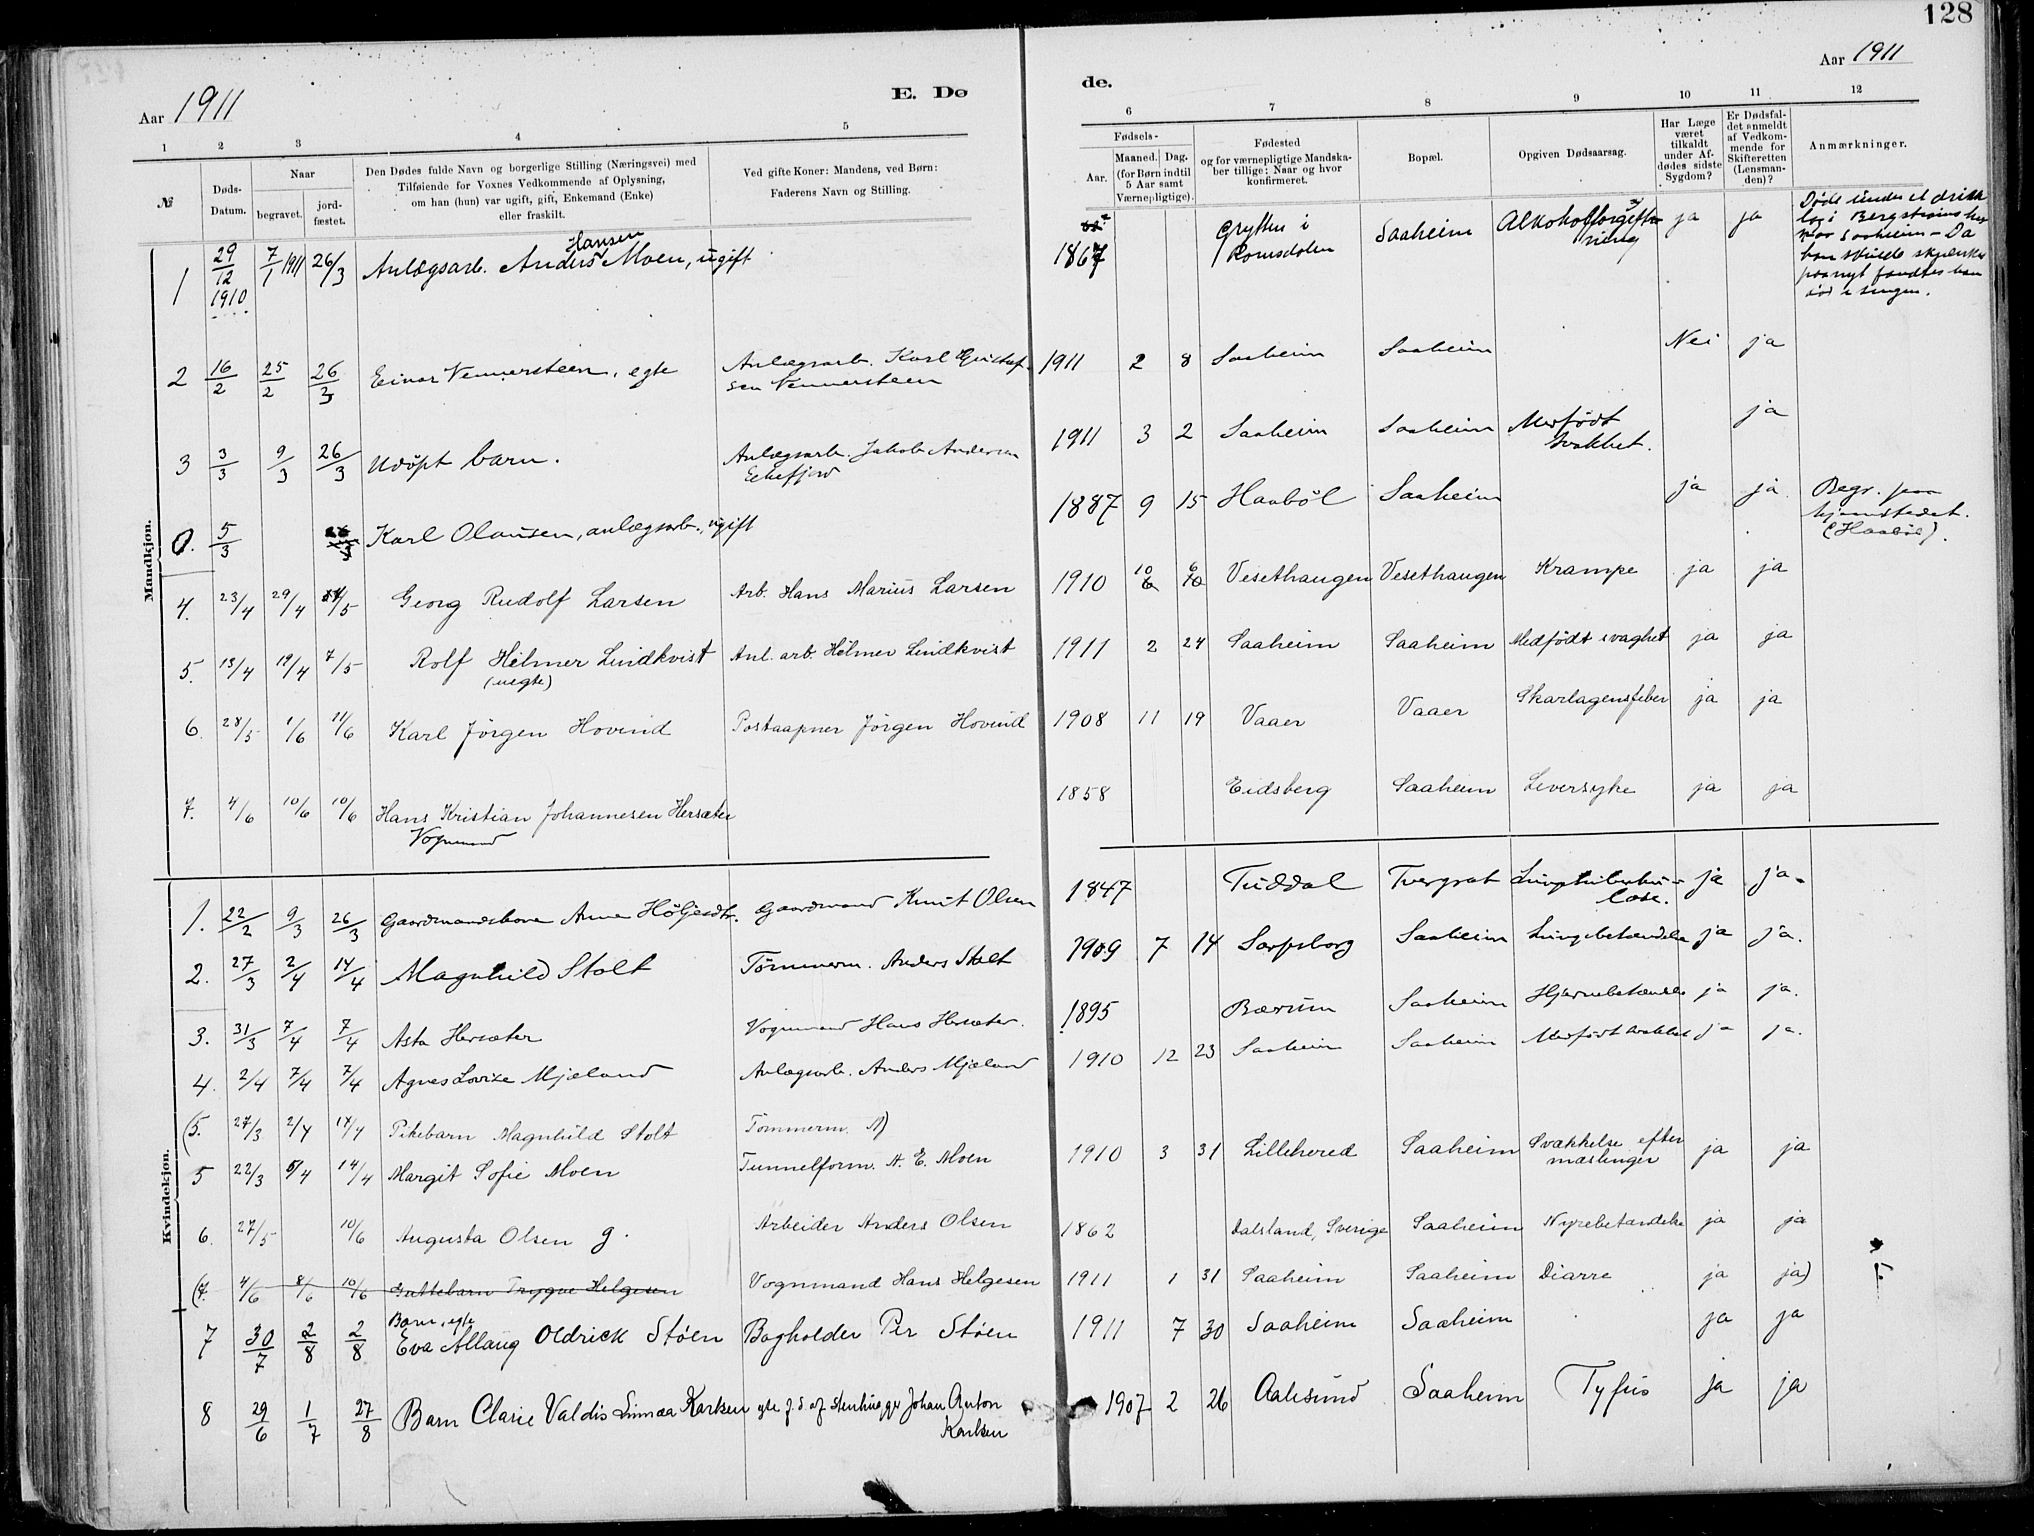 128
Aar 1911
E. Dø
de.
Aar 1911
1 2 3 4 5
6 7 8 9 10 11 12
№
Døds-
Datum.
Naar
begravet.
jord-
fæstet.
Den Dødes fulde Navn og borgerlige Stilling (Næringsvei) med
Tilføiende for Voxnes Vedkommende af Oplysning,
om han (hun) var ugift, gift, Enkemand (Enke)
eller fraskilt.
Ved gifte Koner: Mandens, ved Børn:
Faderens Navn og Stilling.
Fødsels-
Aar.
Maaned. Dag.
(for Børn indtil
5 Aar samt
Værnepligtige).
Fødested
og for værnepligtige Mandska-
ber tillige: Naar og hvor
konfirmeret.
Bopæl.
Opgiven Dødsaarsag.
Har Læge
været
tilkaldt
under Af-
dødes sidste
Sygdom?
Er Dødsfal-
det anmeldt
af Vedkom-
mende for
Skifteretten
(Lensman-
den)?
Anmærkninger.
Mandkjøn.
1 29/12 1910 7/1 1911 26/3 Anlægsarb. Anders Hansen Moen, ugift 1867 Grytten i Romsdalen Saaheim Alkoholforgiftning ja ja
Døde under et drikke
lag i Bergstrøms hus
naar Saaheim - Da
han skulde skjænkes
paanyt fandtes han
død i sengen.
2 16/2 25/2 26/3 Einar Vennersteen, egte Anlægsarb. Karl Gustaf-
sen Vennersteen 1911 2 8 Saaheim Saaheim Nei ja
3 3/3 9/3 26/3 Udøpt barn. Anlægsarb. Jakob Andersen
1911 3 2 Saaheim Saaheim Medfødt svakhet. ja
0. 5/3 26/3 Karl Olausen, anlægsarb., ugift 1887 9 15 Haabøl Saaheim ja ja Begr. paa
hjemstedet.
(Haabøl).
4. 23/4 29/4 /5 Georg Rudolf Larsen Arb. Hans Marius Larsen 1910 10 6 Vesethaugen Vesethaugen Krampe ja ja
5. 13/4 19/4 7/5 Rolf Hilmer Lindkvist Anl. arb. Hilmer Lindkvist 1911 2 24 Saaheim Saaheim Medfødt svaghet ja ja
(uegte)
6. 28/5 1/6 11/6 Karl Jörgen Hovind Postaapner Jörgen Hovind 1908 11 19 Vaaer Vaaer Skarlagensfeber ja ja
7. 4/6 10/6 10/6 Hans Kristian Johannesen Hersæter 1858 Eidsberg Saaheim Leversyke ja ja
Vognmand
Kvindekjøn.
1. 22/2 9/3 26/3 Gaardmandskone Anne Høljesdtr. Gaardmand Knut Olsen 1847 Tuddal Tvergrot Lungtuberku-
lose. ja ja.
2. 27/3 2/4 17/4 Magnhild Stolt Tömmerm. Anders Stolt 1909 7 14 Sarpsborg Saaheim Lungebetændelse ja ja.
3. 31/3 7/4 7/4 Asta Hersæter Vognmand Hans Hersæter. 1895 Bærum Saaheim Hjernebetændelse ja ja.
4. 2/4 7/4 7/4 Agnes Lovize Mjæland Anlægsarb. Anders Mjæland 1910 12 23 Saaheim Saaheim Medfødt svakhet ja ja.
(5. 27/3 2/4 17/4 Pikebarn Magnhild Stolt Tömmerm. A)
5 22/3 5/4 14/4 Margit Sofie Moen Tunnelform. A. E. Moen 1910 3 31 Lilleherred Saaheim Svækkelse efter
mæslinger ja ja
6. 27/5 10/6 Augusta Olsen g. Arbeider Anders Olsen 1862 Dalsland, Sverige Saaheim Nyrebetændelse ja ja
(7. 4/6 8/6 10/6 Guttebarn Trygve Helgesen Vognmand Hans Helgesen 1911 1 31 Saaheim Saaheim Diarre ja ja)
7 30/7 2/8 2/8 Barn, egte
Eva Allaug Oldrick Støen Bogholder Per Støen 1911 7 30 Saaheim Saaheim ja ja
8 29/6 1/7 27/8 Barn Clarie Valdis Linnæa Karlsen egte f. d af Stenhugger Johan Anton
Karlsen 1907 2 26 Aalesund Saaheim Tyfus ja ja